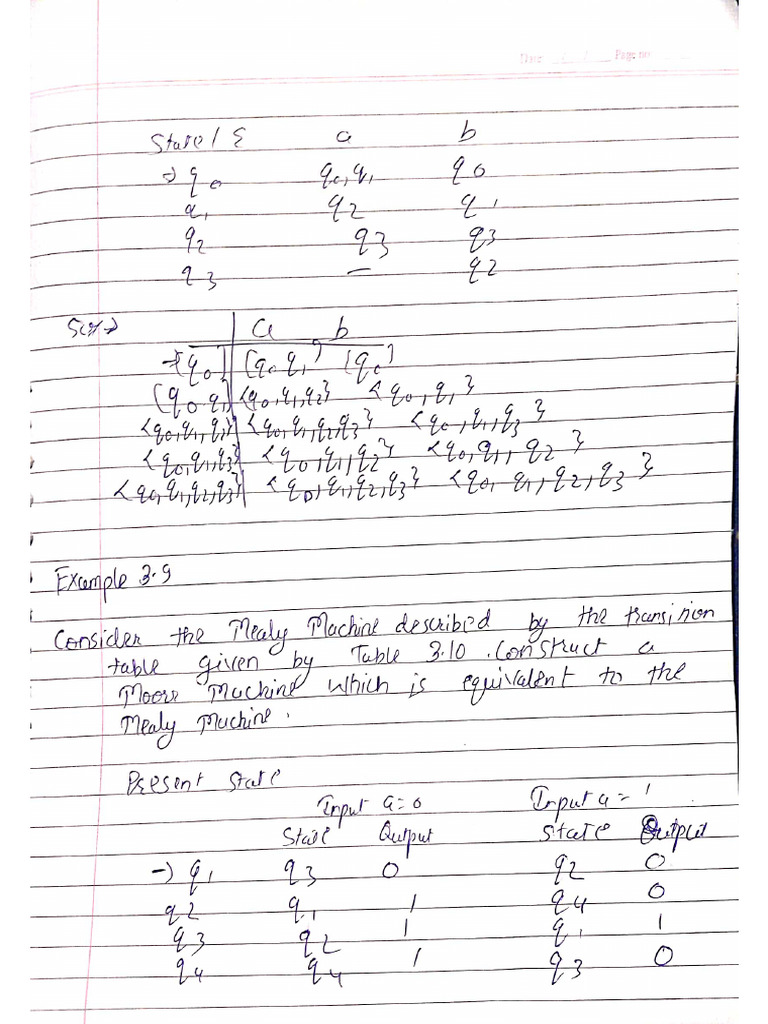 Date / / Page no
State / Σ a b
→ q0 q0, q1 q0
q1 q2 q1
q2 q3 q3
q3 — q2
a b
→ [q0] [q0 q1] [q0]
[q0 q1] {q0, q1, q2} {q0, q1}
{q0, q1, q2} {q0, q1, q2, q3} {q0, q1, q3}
{q0, q1, q3} {q0, q1, q2} {q0, q1, q2}
{q0, q1, q2, q3} {q0, q1, q2, q3} {q0, q1, q2, q3}
Example 3.9
Consider the Mealy Machine described by the transition
table given by Table 3.10. Construct a
Moore Machine which is equivalent to the
Mealy Machine.
Present State
Input a = 0 Input a = 1
State Output State Output
→ q1 q3 0 q2 0
q2 q1 1 q4 0
q3 q2 1 q1 1
q4 q4 1 q3 0